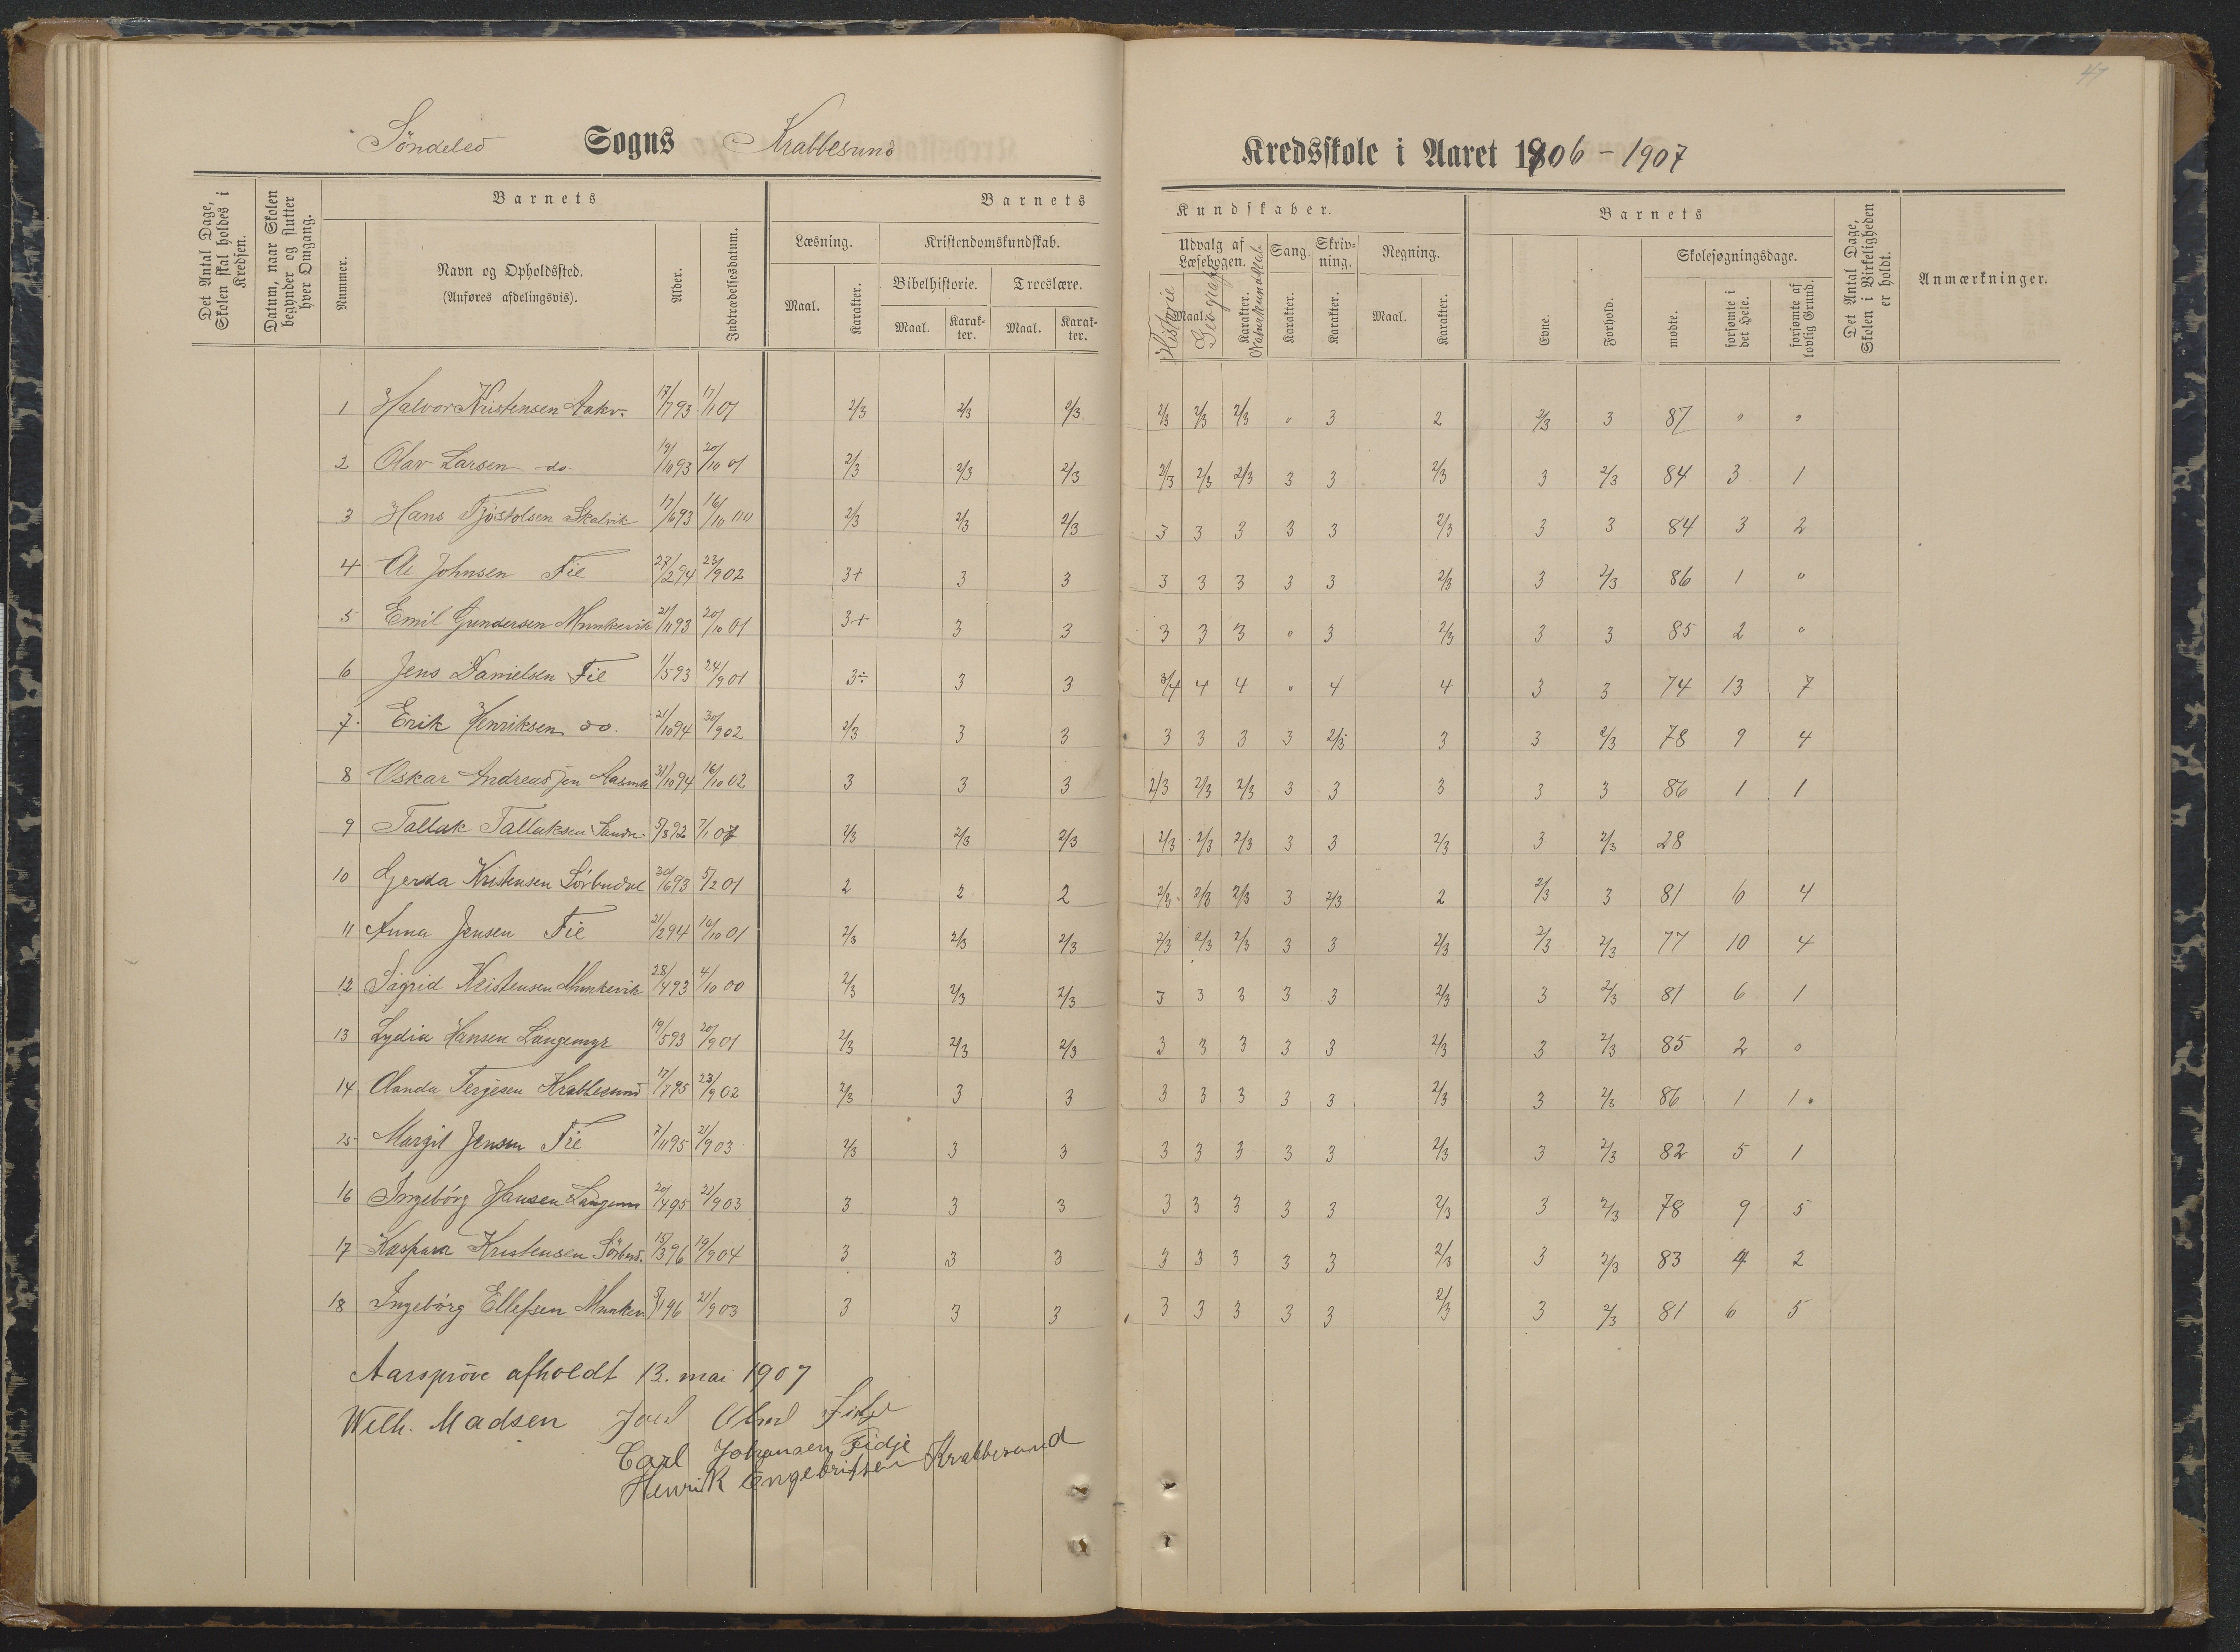 47
Söndeled Sogns Krabbesund Kredsskole i Aaret 1906 - 1907
Det Antal Dage, Skolen skal holdes i Kredsen.
Datum, naar Skolen begynder og slutter hver Omgang.
Barnets
Nummer.
Navn og Opholdssted.
(Anføres afdelingsvis).
Alder.
Indtrædelsesdatum.
Barnets Kundskaber.
Læsning.
Maal.
Karakter.
Kristendomskundskab.
Bibelhistorie.
Maal.
Karakter.
Troeslære.
Maal.
Karakter.
Udvalg af Læsebogen.
Historie
Maal.
Geografi
Karakter.
Naturkundskab
Sang.
Karakter.
Skrivning.
Karakter.
Regning.
Maal.
Karakter.
Barnets
Evne.
Forhold.
Skolesøgningsdage.
mødte.
forsømte i det Hele.
forsømte af lovlig Grund.
Det Antal Dage, Skolen i Virkeligheden er holdt.
Anmærkninger.
1 Halvor Kristensen Aakv. 17/7 93 17/1 07 2/3 2/3 2/3 2/3 2/3 2/3 " 3 2 2/3 3 87 " "
2 Olav Larsen do 19/10 93 20/10 01 2/3 2/3 2/3 2/3 2/3 2/3 3 3 2/3 3 2/3 84 3 1
3 Hans Tjöstolsen Skalvik 17/6 93 16/10 00 2/3 2/3 2/3 3 3 3 3 3 2/3 3 3 84 3 2
4 Ole Johnsen Fie 27/2 94 23/9 02 3+ 3 3 3 3 3 3 3 2/3 3 2/3 86 1 "
5 Emil Gundersen Munkevik 21/11 93 20/10 01 3+ 3 3 3 3 3 " 3 2/3 3 3 85 2 "
6 Jens Danielsen Fie 1/5 93 24/9 01 3÷ 3 3 3/4 4 4 " 4 4 3 3 74 13 7
7. Erik Henriksen do. 21/10 94 30/9 02 2/3 3 3 3 3 3 3 2/3 3 3 2/3 78 9 4
8 Oskar Andreassen 31/10 94 16/10 02 3 3 3 2/3 2/3 2/3 3 3 3 3 3 86 1 1
9 Tallak Tallaksen Sandn. 5/8 92 7/1 07 2/3 2/3 2/3 2/3 2/3 2/3 3 3 2/3 3 2/3 28
10 Gerda Kristensen Sörbudal 30/6 93 5/2 01 2 2 2 2/3 2/3 2/3 3 2/3 2 2/3 3 81 6 4
11 Anna Jensen Fie 21/2 94 14/10 01 2/3 2/3 2/3 2/3 2/3 2/3 3 3 2/3 2/3 2/3 77 10 4
12 Sigrid Kristensen Munkevik 28/4 93 4/10 00 2/3 2/3 2/3 3 3 3 3 3 2/3 3 2/3 81 6 1
13 Lydia Hansen Langemyr 19/5 93 20/9 01 2/3 2/3 2/3 3 3 3 3 3 2/3 3 2/3 85 2 "
14 Olanda Terjesen Krabbesund 17/7 95 23/9 02 2/3 3 3 3 3 3 3 3 2/3 3 2/3 86 1 1
15 Margit Jensen Fie 7/11 95 21/9 03 2/3 3 3 3 3 3 3 3 2/3 3 2/3 82 5 1
16 Ingebörg Hansen Langem 20/4 95 21/9 03 3 3 3 3 3 3 3 3 2/3 3 2/3 78 9 5
17 Kaspara Kristensen Sörbud. 15/3 96 19/9 04 3 3 3 3 3 3 3 3 2/3 3 2/3 83 4 2
18 Ingebörg Ellefsen Munkev. 5/1 96 21/9 03 3 3 3 3 3 3 3 3 2/3 3 2/3 81 6 5
Aarspröve afholdt 13. mai 1907
Wilh. Madsen
Carl Johansen Fidje
Henrik Engebritsen Krabbesund